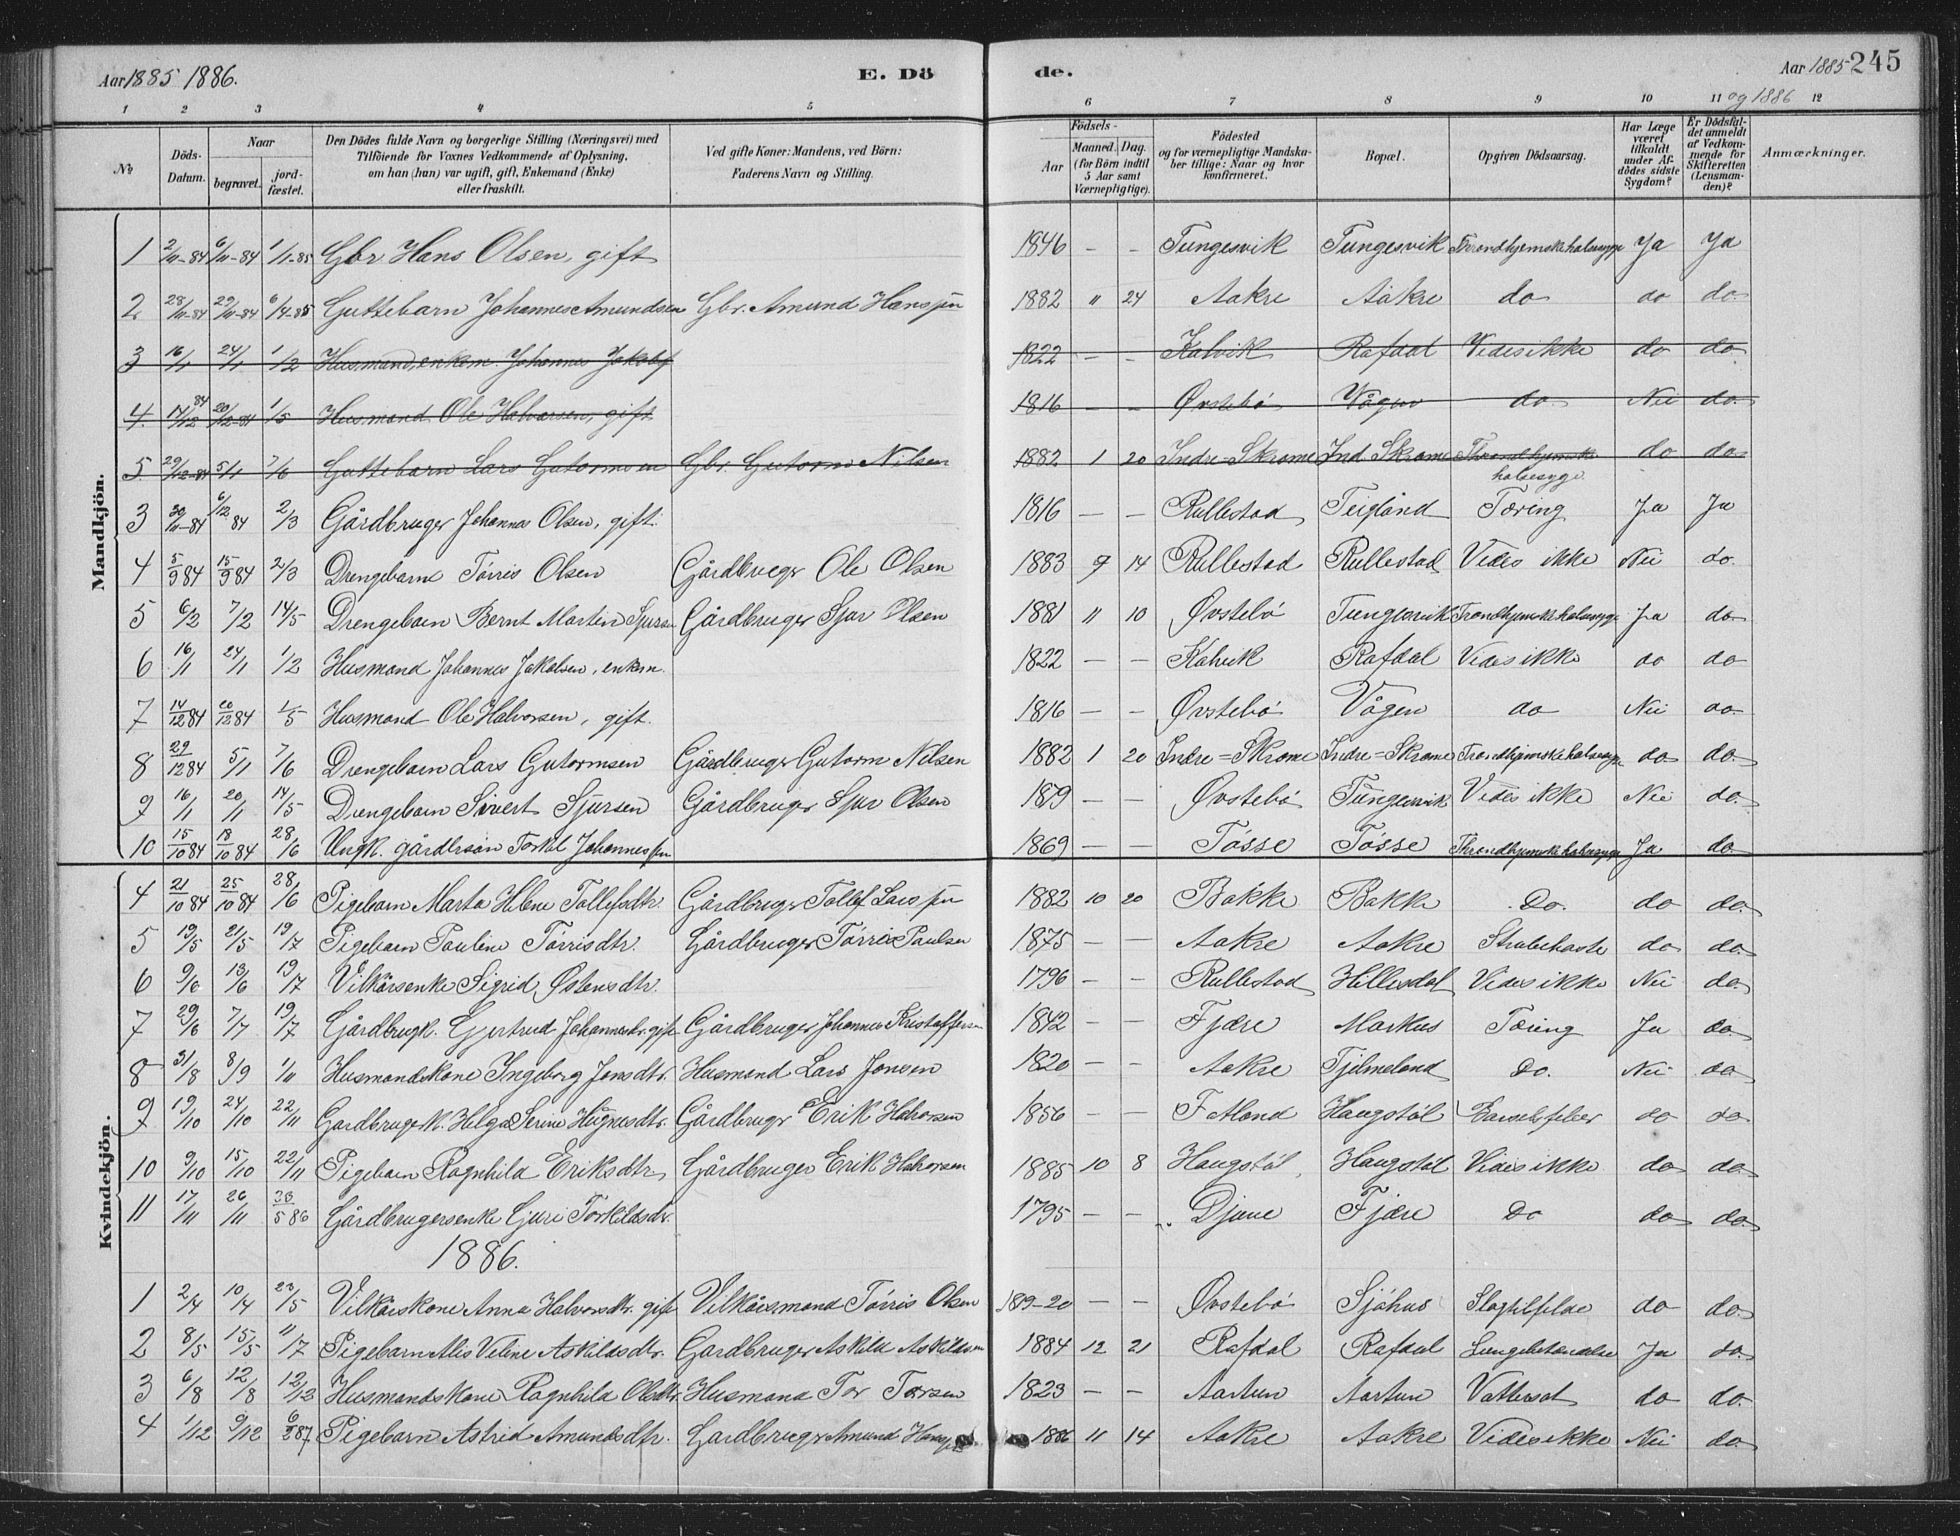 Aar 1885 1886. E. Dö de. Aar 1885 245
og 1886
1 2 3 4 5 6 7 8 9 10 11 12
No Döds-Datum. Naar begravet. jordfæstet. Den Dödes fulde Navn og borgerlige Stilling (Næringsvei) med Tilföiende for Voxnes Vedkommende af Oplysning, om han (hun) var ugift, gift, Enkemand (Enke) eller fraskilt. Ved gifte Koner: Mandens, ved Börn: Faderens Navn og Stilling. Födsels- Aar Maaned. Dag. (for Börn indtil 5 Aar samt Værnepligtige). Födested og for værnepligtige Mandskaber tillige: Naar og hvor konfirmeret. Bopæl. Opgiven Dödsaarsag. Har Læge været tilkaldt under Afdödes sidste Sygdom? Er Dödsfaldet anmeldt af Vedkommende for Skifteretten (Lensmanden)? Anmærkninger.
Mandkjön.
1 2/11-84 6/11-84 1/1-85 Gbr Hans Olsen, gift 1846 - - Tungesvik Tungesvik Throndhjemske halssyge Ja Ja
2 28/11-84 29/11-84 6/4-85 Guttebarn Johannes Amundsen Gbr. Amund Hanssen 1882 11 24 Aakre Aakre do do do
3 16/1 24/1 1/2 Husmand, enkem. Johannes Jakobs 1822 - - Kalvik Rafdal Vides ikke do do
4. 14/12 84 20/12-84 1/5 Husmand Ole Halvorsen, gift 1816 - - Øvstebö Vågen do Nei do
5 29/12-84 5/1 7/6 Guttebarn Lars Gutormsen Gbr. Gutorm Nilsen 1882 1 20 Indre Skrome Ind Skrome Throndhjemske halssyge do do
3 30/11-84 6/12 84 2/3 Gårdbruger Johannes Olsen, gift. 1816 - - Rullestad Teigland Tæring Ja Ja
4 5/9 84 15/9 84 2/3 Drengebarn Törris Olsen Gårdbruger Ole Olsen 1883 9 14 Rullestad Rullestad Vides ikke Nei do
5 6/2 7/2 14/5 Drengebarn Bernt Martin Sjursen Gårdbruger Sjur Olsen 1881 11 10 Øvstebö Tungesvik Trondhjemske halssyge Ja do
6 16/1 24/1 1/2 Husmand Johannes Jakobsen, enkem. 1822 - - Kalvik Rafdal Vides ikke do do
7 14/12 84 20/12 84 1/5 Husmand Ole Halvorsen, gift. 1816 - - Øvstebö Vågen do Nei do
8 29/12 84 5/1 7/6 Drengebarn Lars Gutormsen Gårdbruger Gutorm Nilsen 1882 1 20 Indre=Skrome Indre=Skrome Trondhjemske halssyge do do
9 16/1 20/1 14/5 Drengebarn Sivert Sjursen Gårdbruger Sjur Olsen 1879 - - Øvstebö Tungesvik Vides ikke Nei do
10 15/10 84 18/10 84 28/6 Ungk. gårdbrsøn Torkel Johannessen 1869 - - Tösse Tösse Throndhjemske halssyge Ja do
Kvindekjön.
4 21/10 84 25/10 84 28/6 Pigebarn Marta Helene Tollefsdtr. Gårdbruger Tollef Larssen 1882 10 20 Bakke Bakke Do. do do
5 19/5 21/5 19/7 Pigebarn Pauline Törrisdtr. Gårdbruger Törris Paulsen 1875 - - Aakre Aakre Strubehoste do do
6 9/6 13/6 19/7 Vilkårsenke Sigrid Østensdtr. 1796 - - Rullestad Hillesdal Vides ikke Nei do
7 29/6 7/7 19/7 Gårdbrugk. Gjertrud Johannesdtr. gift Gårdbruger Johannes Kristoffersen 1842 - - Fjære Markus Tæring Ja do
8 31/8 8/9 1/11 Husmandskone Ingeborg Jonsdtr. Husmand Lars Jonsen 1820 - - Aakre Fjelmeland Do. Nei do
9 19/10 24/10 22/11 Gårdbrugerk. Helga Serine Hågnesdtr. Gårdbrugr Erik Halvorsen 1856 - - F Aland Haugstöl Barselsfeber do do
10 9/10 15/10 22/11 Pigebarn Ragnhild Eriksdtr Gårdbruger Erik Halvorsen 1885 10 8 Haugstöl Haugstöl Vides ikke do do
11 17/11 26/11 23/5 86 Gårdbrugersenke Gjuri Torkildsdr. 1795 - - Djuve Fjære Do do do
1886.
1 2/4 10/4 23/5 Vilkårskone Anna Halvorsdtr. gift Vilkårsmand Törris Olsen 1819-20 - - Øvstebö Sjöhus Slagtilfælde do do
2 8/5 15/5 11/7 Pigebarn Alis Veline Askildsdtr. Gardbruger Askild Askildsen 1884 12 21 Rafdal Rafdal Lungebetændelse Ja do
3 6/8 12/8 12/12 Husmandskone Ragnhild Olsdtr. Husmand Tor Torsen 1823 - - Aartun Aartun Vattersot do do
4 1/12 9/12 6/2 87 Pigebarn Astrid Amundsdtr. Gardbruger Amund 1886 11 14 Aakre Aakre Vides ikke Nei do